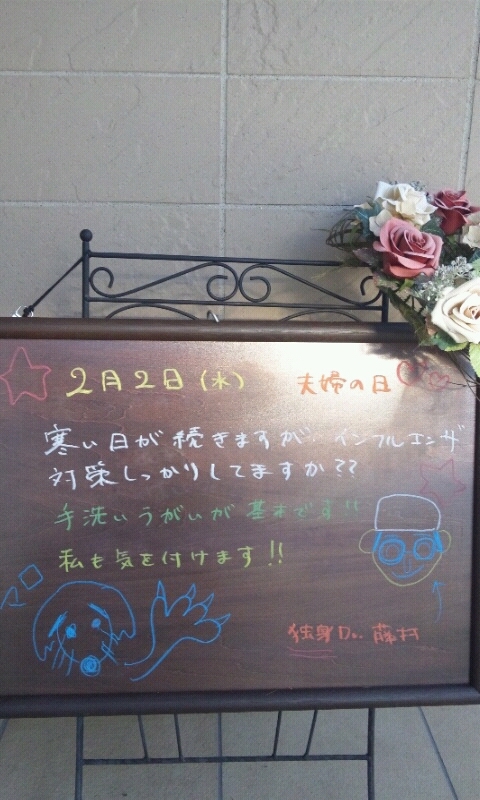 2月2日(水) 夫婦の日
寒い日が続きますが、インフルエンザ
対策しっかりしてますか??
手洗いうがいが基本です!!
私も気を付けます!!
独身Dr. 藤村